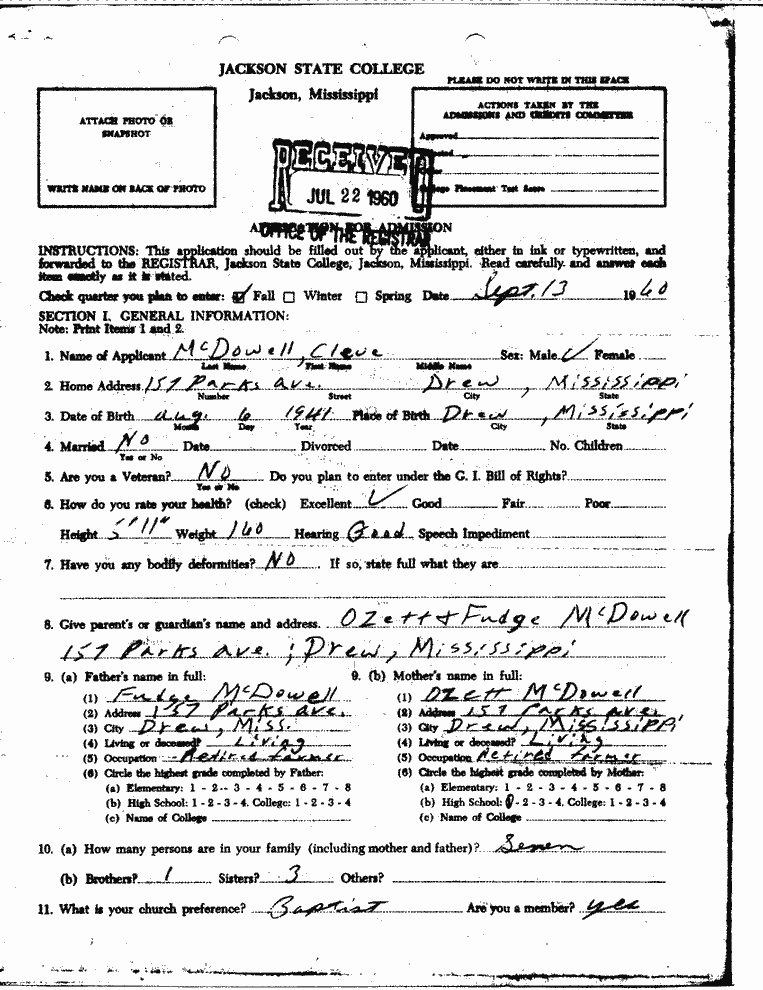 JACKSON STATE COLLEGE
Jackson, Mississippi
PLEASE DO NOT WRITE IN THIS SPACE
ATTACH PHOTO OR
SNAPSHOT
WRITE NAME ON BACK OF PHOTO
ACTIONS TAKEN BY THE
ADMISSIONS AND CREDITS COMMITTEE
Approved
College Placement Test Score
RECEIVED
JUL 22 1960
OFFICE OF THE REGISTRAR
APPLICATION FOR ADMISSION
INSTRUCTIONS: This application should be filled out by the applicant, either in ink or typewritten, and
forwarded to the REGISTRAR, Jackson State College, Jackson, Mississippi. Read carefully and answer each
item exactly as it is stated.
Check quarter you plan to enter: ☑ Fall ☐ Winter ☐ Spring Date Sept. 13 1960
SECTION I. GENERAL INFORMATION:
Note: Print Items 1 and 2.
1. Name of Applicant McDowell, Cleve Sex: Male ✓ Female
Last Name First Name Middle Name
2. Home Address 157 Parks Ave. Drew, Mississippi
Number Street City State
3. Date of Birth Aug. 6 1941 Place of Birth Drew, Mississippi
Month Day Year City State
4. Married No Date Divorced Date No. Children
Yes or No
5. Are you a Veteran? No Do you plan to enter under the G. I. Bill of Rights?
Yes or No
6. How do you rate your health? (check) Excellent ✓ Good Fair Poor
Height 5'11" Weight 160 Hearing Good Speech Impediment
7. Have you any bodily deformities? No If so, state full what they are
8. Give parent's or guardian's name and address. Ozett & Fudge McDowell
157 Parks Ave.; Drew, Mississippi
9. (a) Father's name in full: 9. (b) Mother's name in full:
(1) Fudge McDowell (1) Ozett McDowell
(2) Address 157 Parks Ave. (2) Address 157 Parks Ave.
(3) City Drew, Miss. (3) City Drew, Mississippi
(4) Living or deceased? Living (4) Living or deceased? Living
(5) Occupation Retired farmer (5) Occupation Retired farmer
(6) Circle the highest grade completed by Father: (6) Circle the highest grade completed by Mother:
(a) Elementary: 1 - 2 - 3 - 4 - 5 - 6 - 7 - 8 (a) Elementary: 1 - 2 - 3 - 4 - 5 - 6 - 7 - 8
(b) High School: 1 - 2 - 3 - 4. College: 1 - 2 - 3 - 4 (b) High School: 1 - 2 - 3 - 4. College: 1 - 2 - 3 - 4
(c) Name of College (c) Name of College
10. (a) How many persons are in your family (including mother and father)? Seven
(b) Brothers? 1 Sisters? 3 Others?
11. What is your church preference? Baptist Are you a member? yes